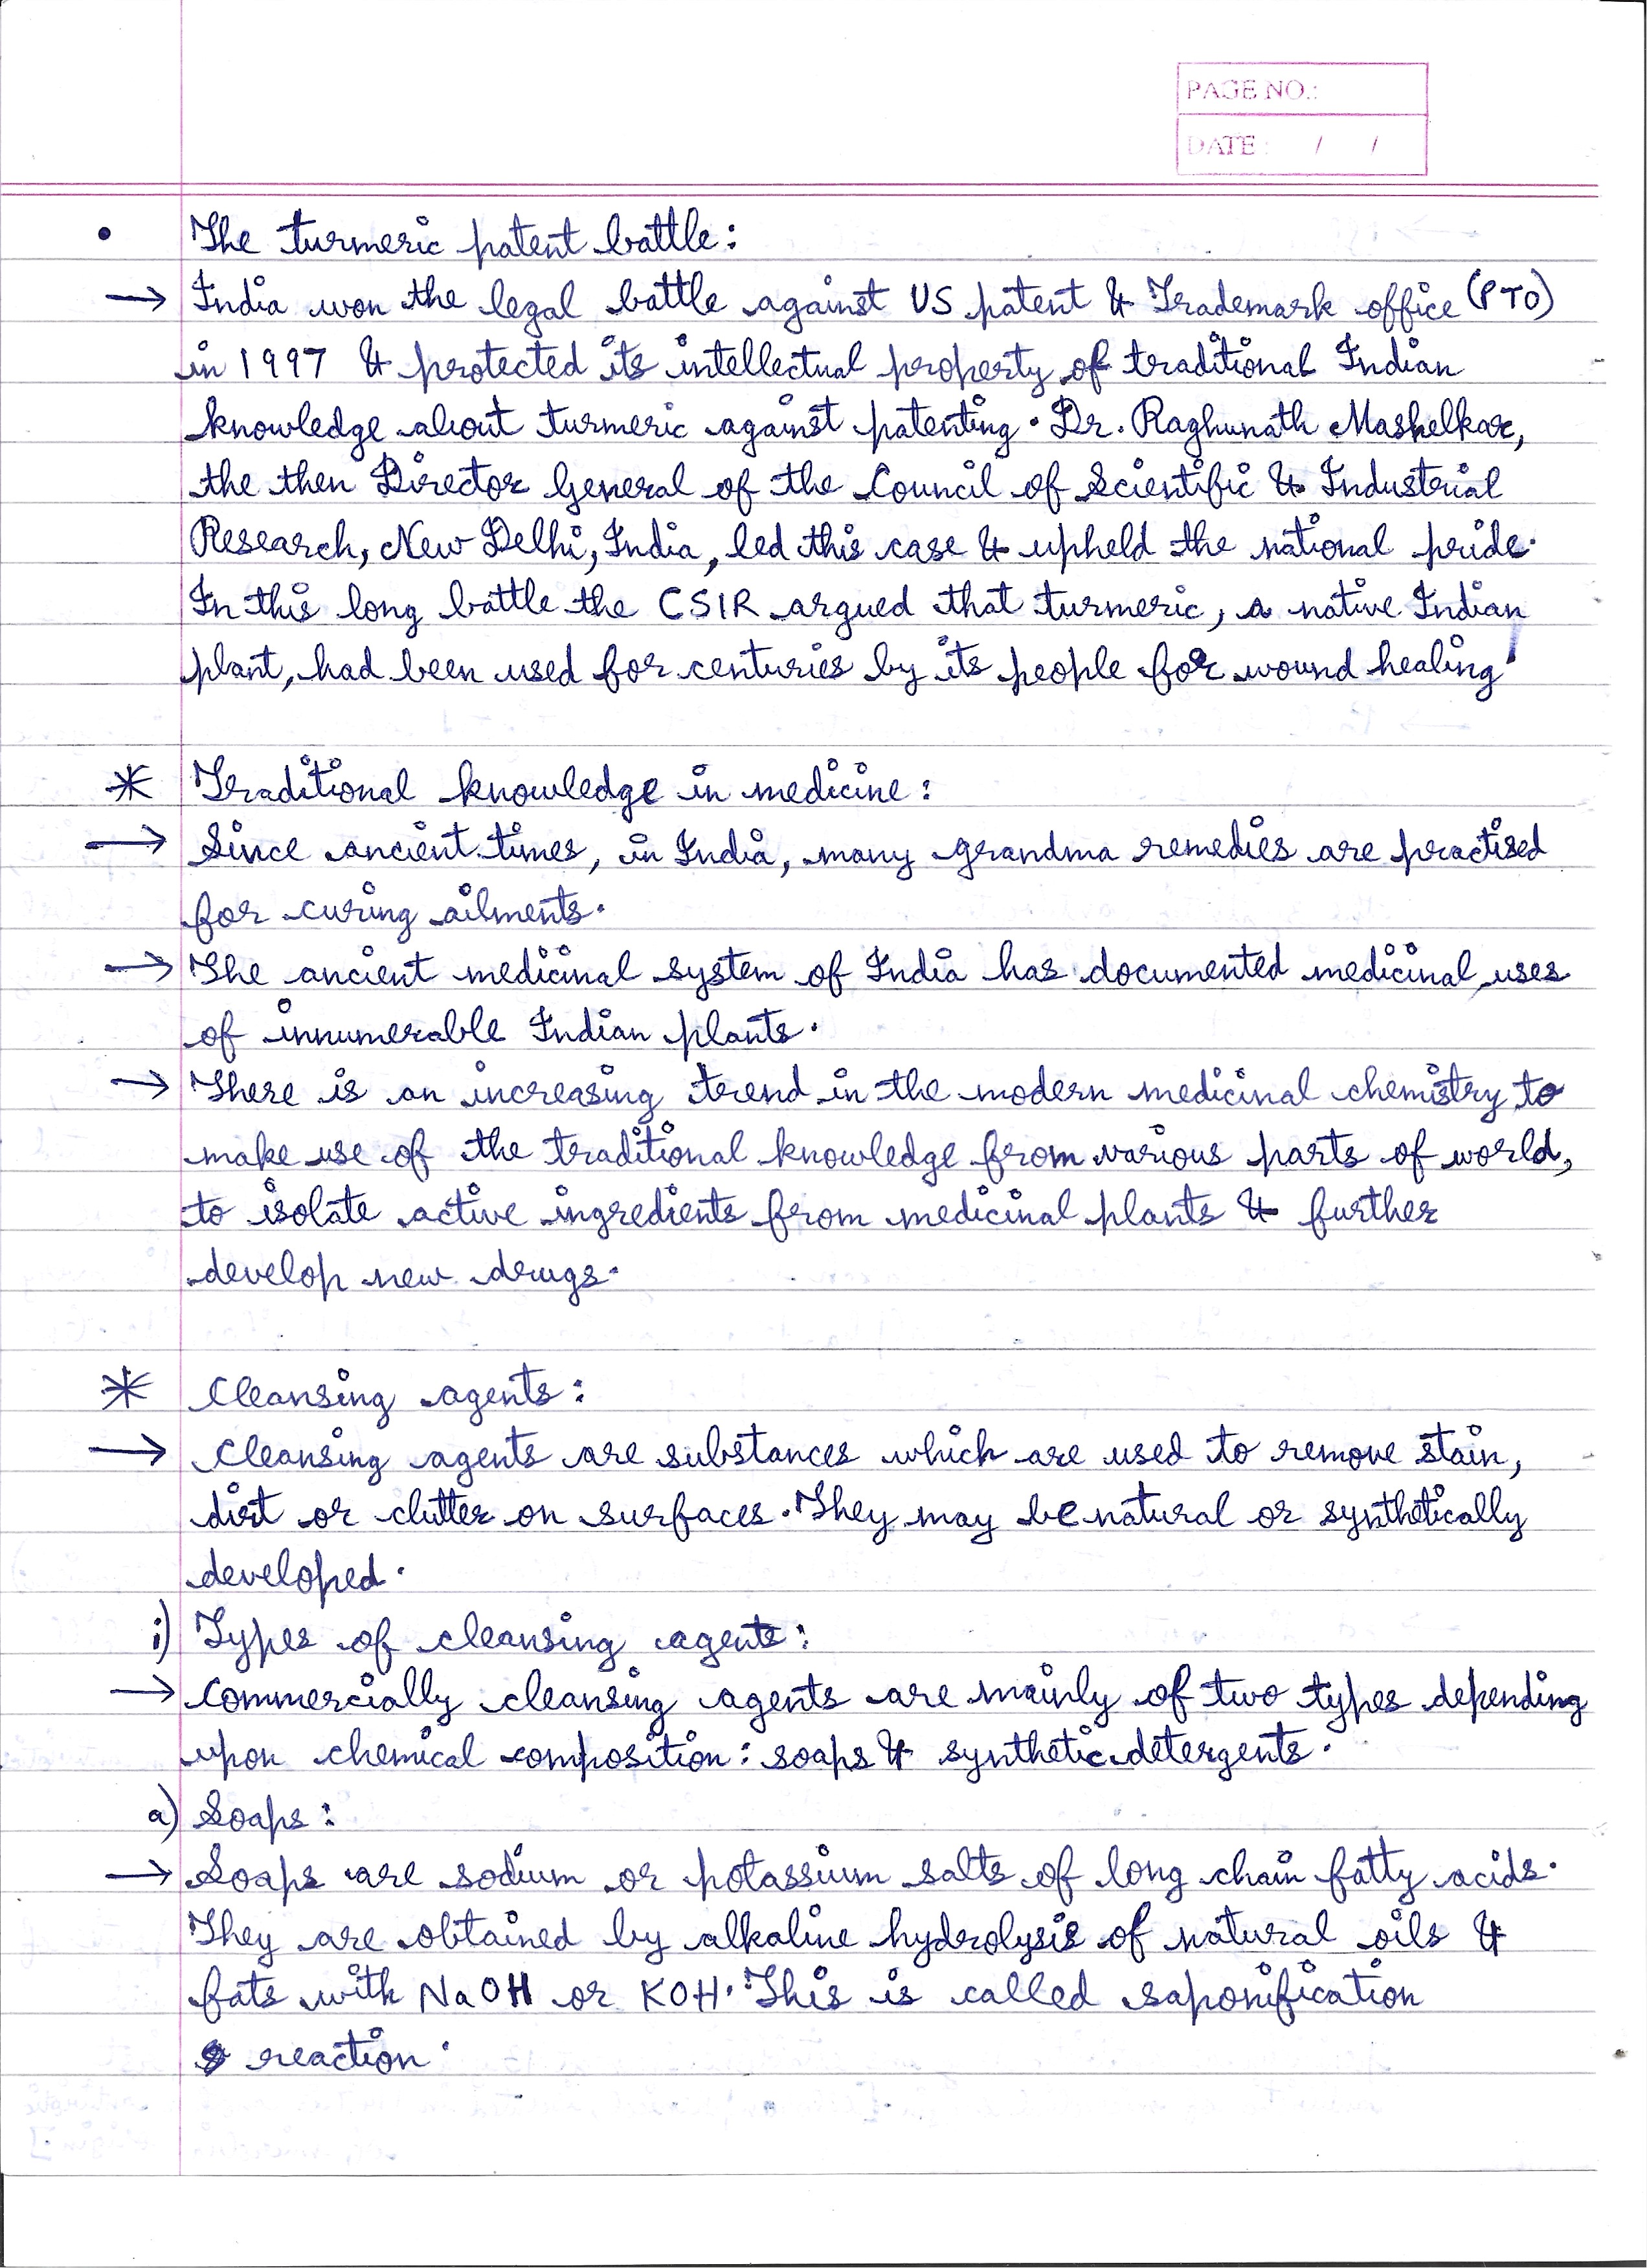 PAGE NO.:
DATE : / /
• The turmeric patent battle:
→ India won the legal battle against US patent & Trademark office (PTO)
in 1997 & protected its intellectual property of traditional Indian
knowledge about turmeric against patenting. Dr. Raghunath Mashelkar,
the then Director General of the Council of Scientific & Industrial
Research, New Delhi, India, led this case & upheld the national pride.
In this long battle the CSIR argued that turmeric, a native Indian
plant, had been used for centuries by its people for wound healing.
* Traditional knowledge in medicine:
→ Since ancient times, in India, many grandma remedies are practised
for curing ailments.
→ The ancient medicinal system of India has documented medicinal uses
of innumerable Indian plants.
→ There is an increasing trend in the modern medicinal chemistry to
make use of the traditional knowledge from various parts of world,
to isolate active ingredients from medicinal plants & further
develop new drugs.
* Cleansing agents:
→ Cleansing agents are substances which are used to remove stain,
dirt or clutter on surfaces. They may be natural or synthetically
developed.
i) Types of cleansing agents:
→ Commercially cleansing agents are mainly of two types depending
upon chemical composition: soaps & synthetic detergents.
a) Soaps:
→ Soaps are sodium or potassium salts of long chain fatty acids.
They are obtained by alkaline hydrolysis of natural oils &
fats with NaOH or KOH. This is called saponification
reaction.